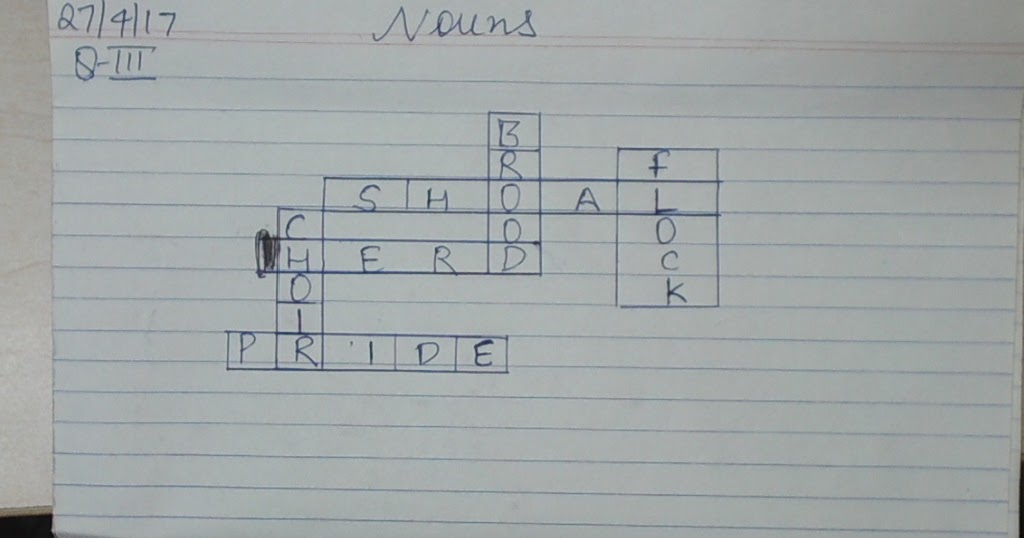 27/4/17 Nouns
Q-III
B
R F
S H O A L
C O O
H E R D C
O K
I
P R I D E